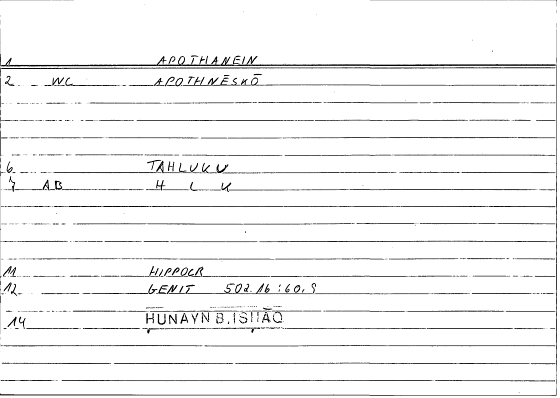 1 APOTHANEIN
2 WC APOTHNĒSKŌ
6 TAHLUKU
7 AB H L K
11 HIPPOCR
12 GENIT 502.16:60.9
14 ḤUNAYN B. ISḤĀQ